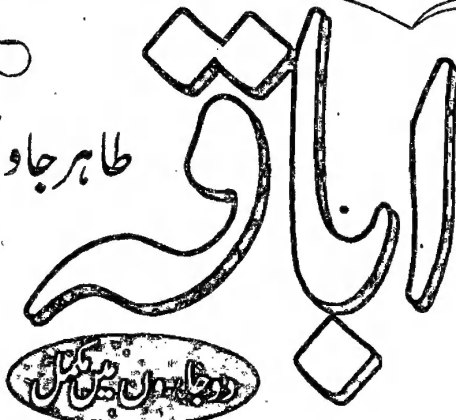 اباقہ
طاہر جاو
دو جلدوں میں مکمل